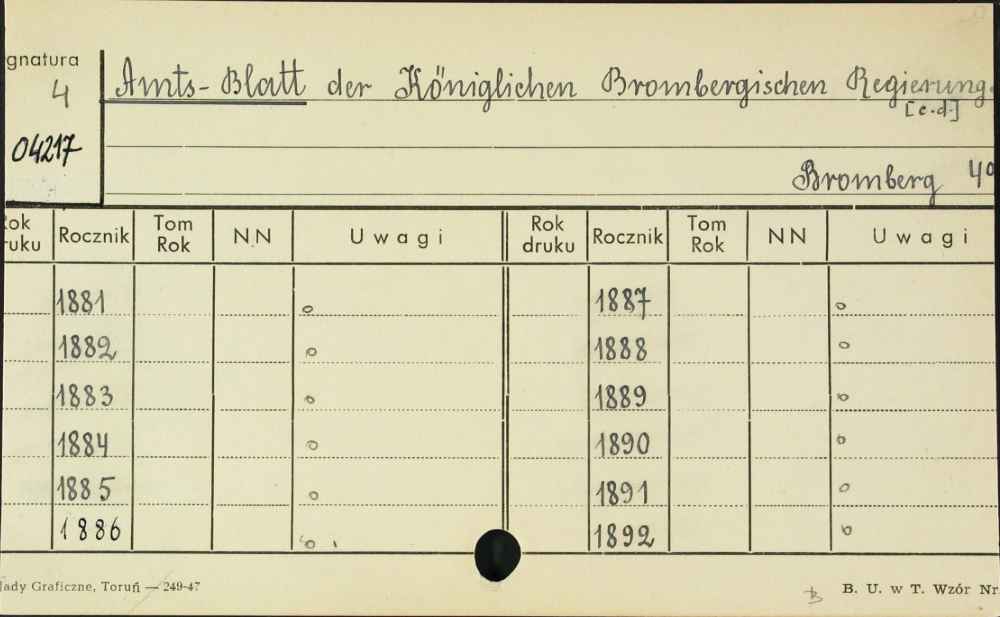 gnatura
4
04217
Amts-Blatt der Königlichen Brombergischen Regierung.
[c.d.]
Bromberg 4º
Rok druku Rocznik Tom Rok NN Uwagi Rok druku Rocznik Tom Rok NN Uwagi
1881 o 1887 o
1882 o 1888 o
1883 o 1889 o
1884 o 1890 o
1885 o 1891 o
1886 o 1892 o
łady Graficzne, Toruń — 249-47
B. U. w T. Wzór Nr